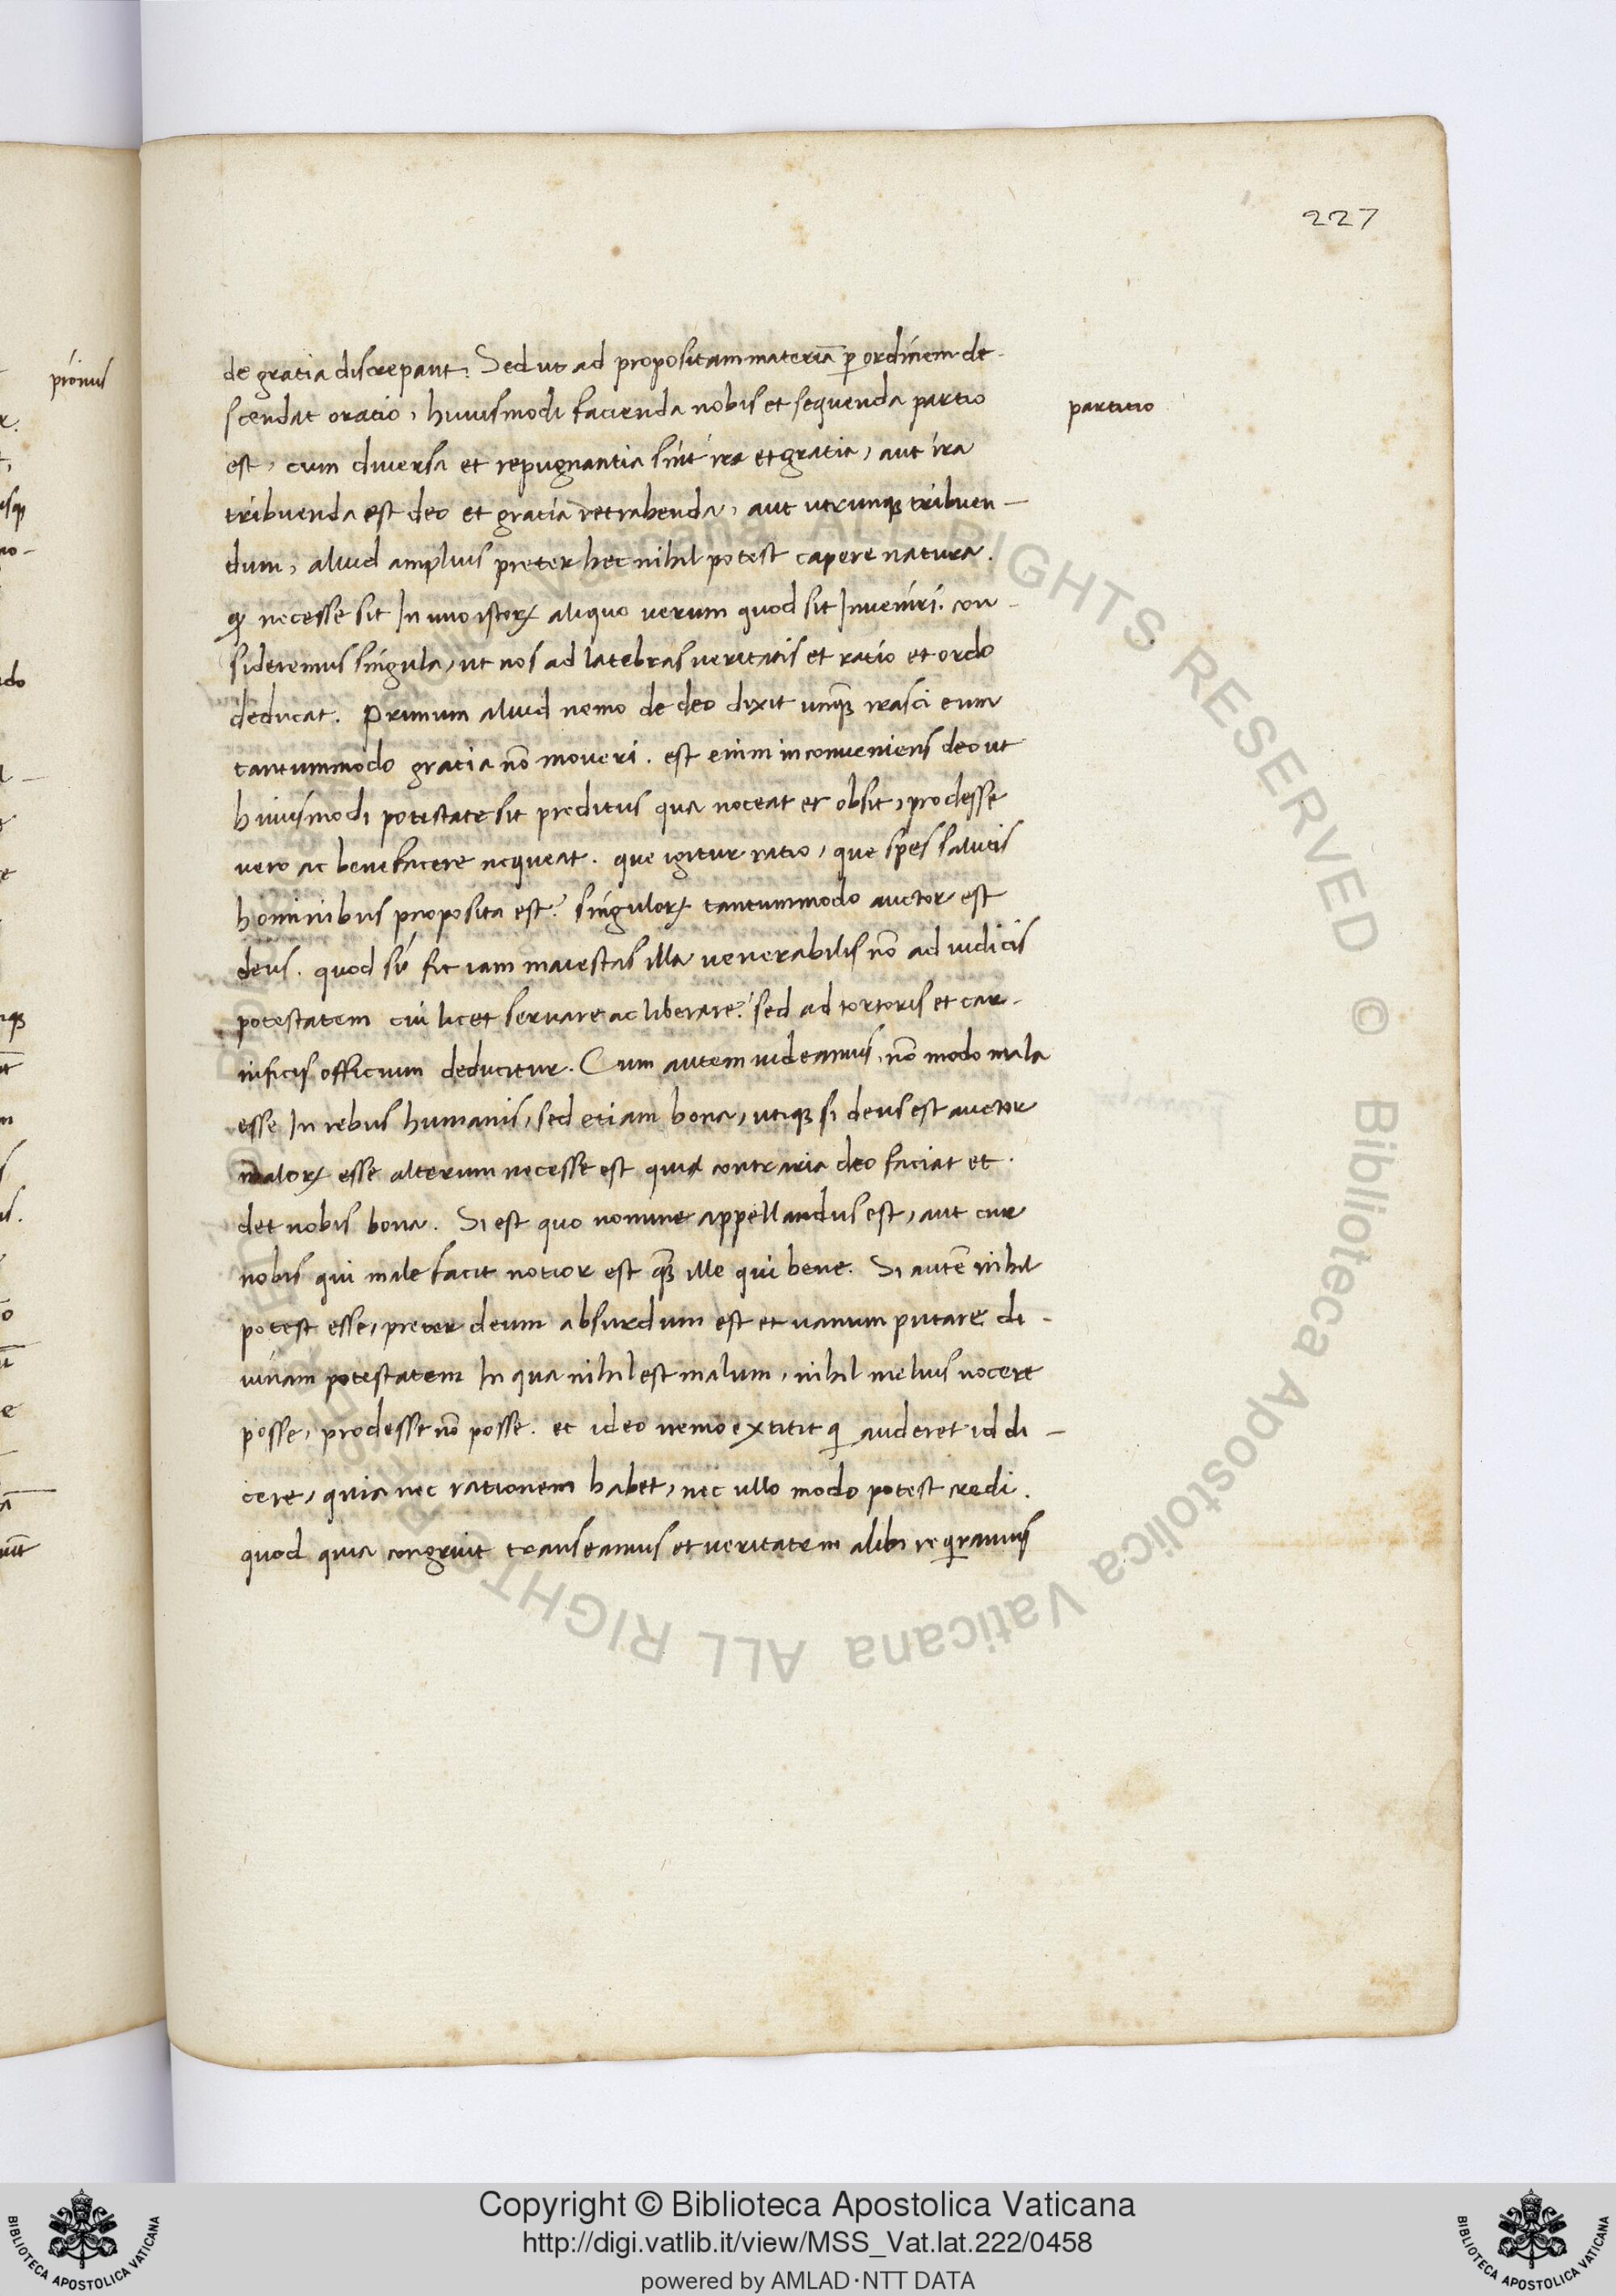 227
de gratia discrepant. Sed ut ad propositam materiā ꝑ ordinem de-
scendat oratio, huiusmodi facienda nobis et sequenda partio
partitio
est, cum diuersa et repugnantia sint ira et gratia, aut ira
tribuenda est deo et gratia retrahenda, aut utrunqꝫ tribuen-
dum, aliud amplius preter hec nihil potest capere natura.
necesse sit In uno istoꝝ aliquo uerum quod sit Inueniri. con-
sideremus singula, ut nos ad latebras ueritatis et ratio et ordo
deducat. Primum aliud nemo de deo dixit unqꝫ irasci eum
tantummodo gratia nō moueri. est enim inconueniens deo ut
huiusmodi potestate sit preditus qua noceat et obsit, prodesse
uero ac benefacere nequeat. que igitur ratio, que spes salutis
hominibus proposita est? singuloꝝ tantummodo auctor est
deus. quod si fit iam maiestas illa uenerabilis nō ad iudicis
potestatem cui licet seruare ac liberare? sed ad tortoris et car-
nificis officium deducitur. Cum autem uideamus, nō modo mala
esse In rebus humanis, sed etiam bona, utiqꝫ si deus est auctor
maloꝝ esse alterum necesse est qui contraria deo faciat et
det nobis bona. Si est quo nomine appellandus est, aut cur
nobis qui male facit notior est qꝫ ille qui bene. Si autē nihil
potest esse, preter deum absurdum est et uanum putare di-
uinam potestatem In qua nihil est malum, nihil melius nocere
posse, prodesse nō posse. et ideo nemo extitit qi auderet id di-
cere, quia nec rationem habet, nec ullo modo potest credi.
quod quia congruit transeamus et ueritatem alibi reqiramus
pronus
Copyright © Biblioteca Apostolica Vaticana
http://digi.vatlib.it/view/MSS_Vat.lat.222/0458
powered by AMLAD·NTT DATA
BIBLIOTECA APOSTOLICA VATICANA
BIBLIOTECA APOSTOLICA VATICANA